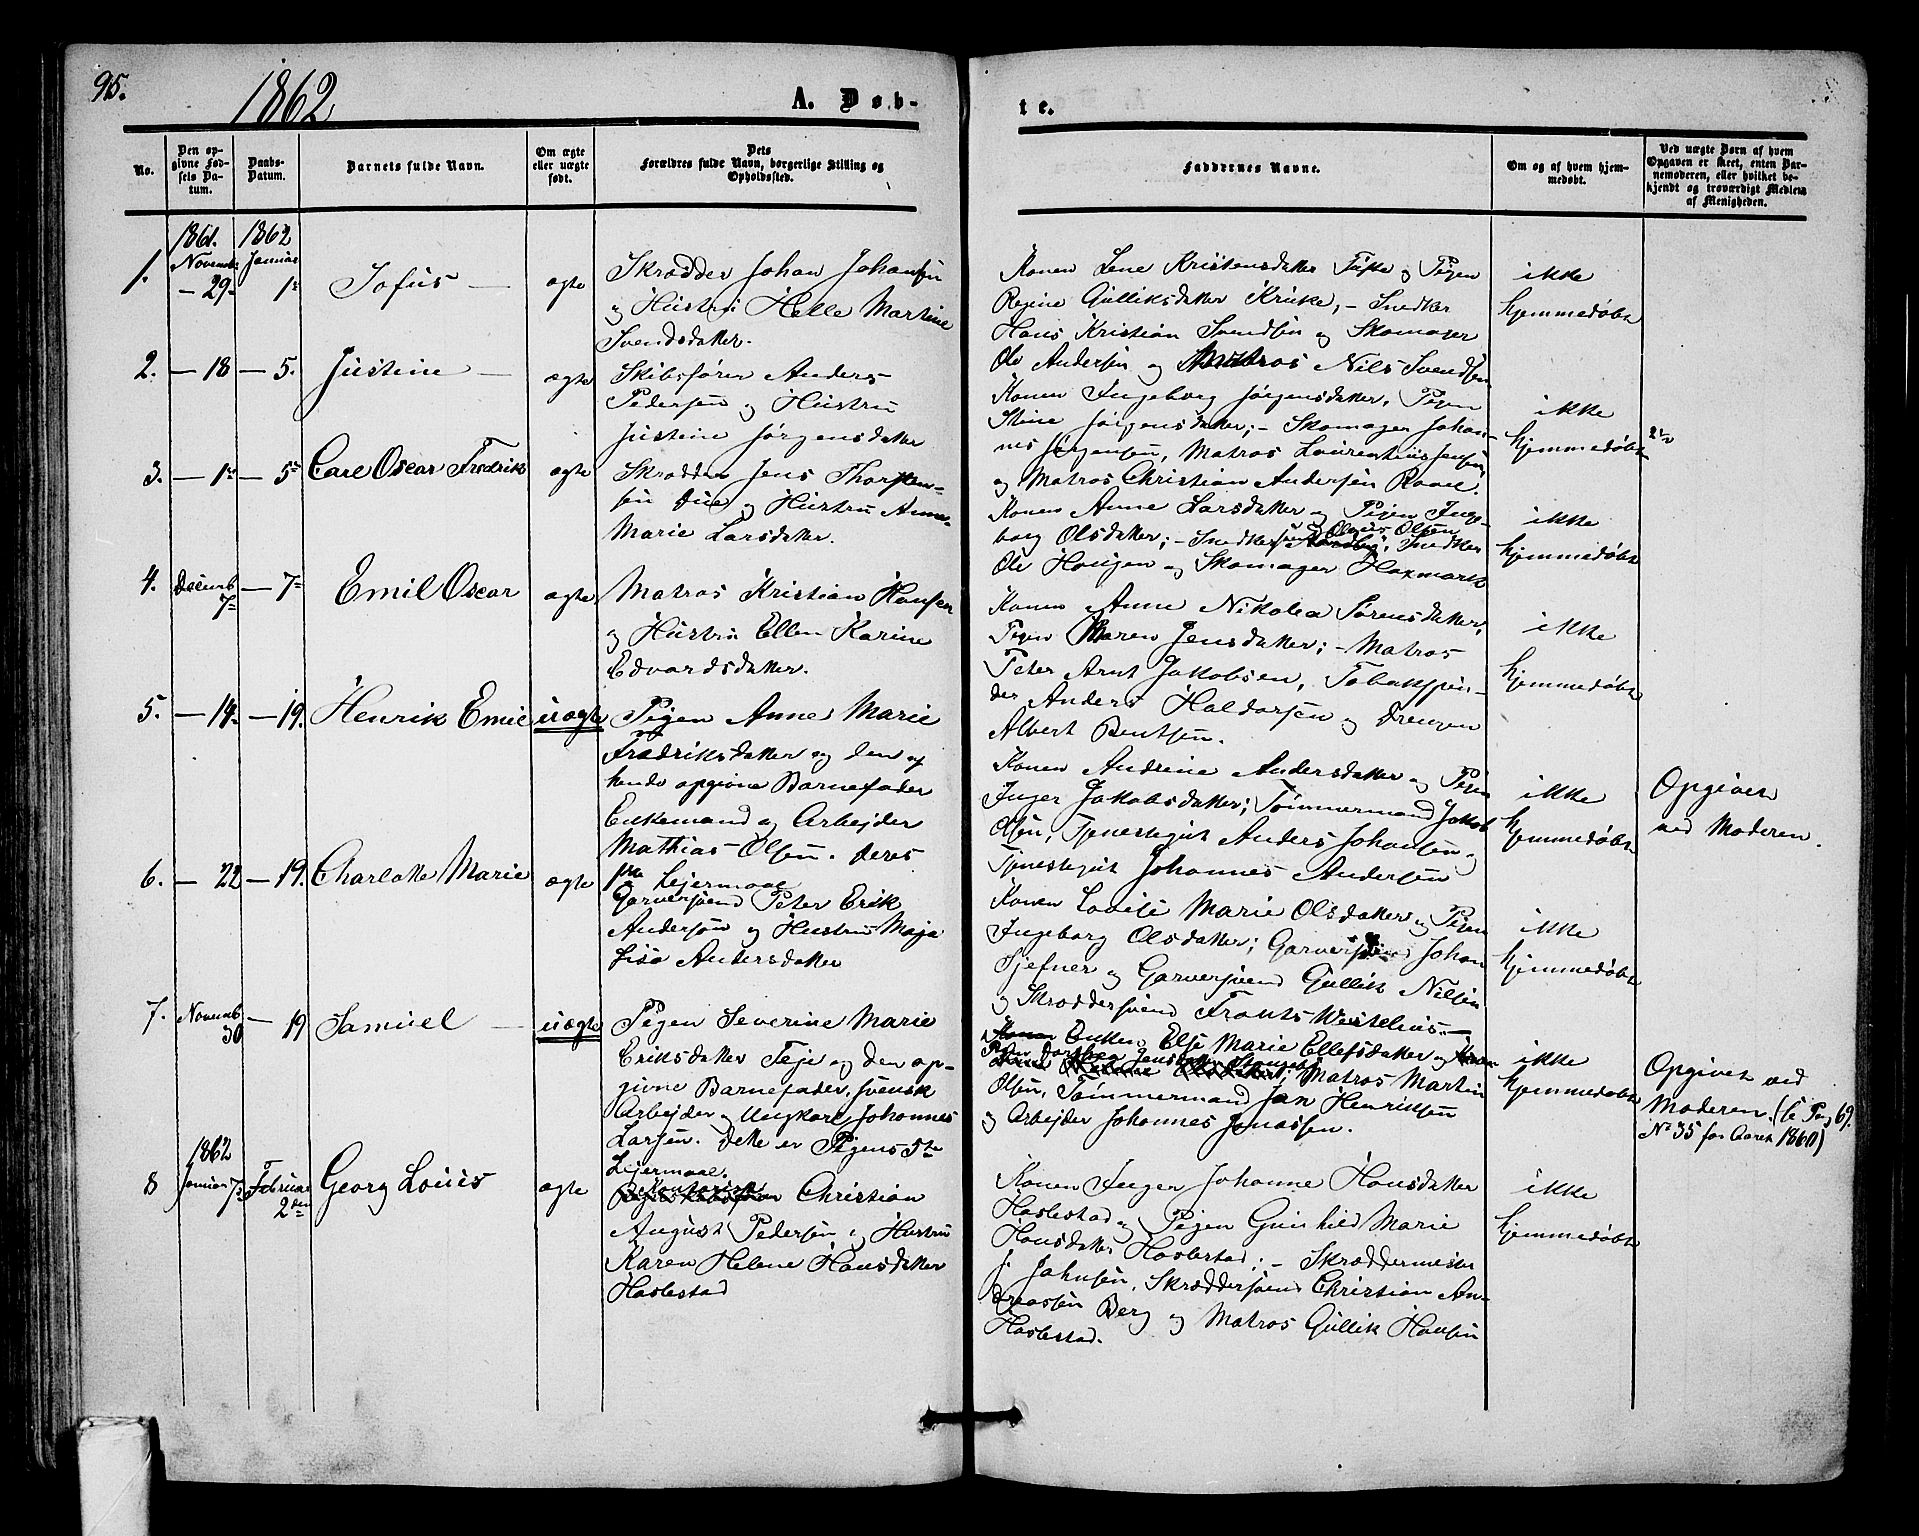 95.
1862
A. Døb-
te.
No.
Den op-
givne Fød-
sels Da-
tum.
Daabs-
Datum.
Barnets fulde Navn.
Om ægte
eller uægte
født.
Dets
Forældres fulde Navn, borgerlige Stilling og
Opholdssted.
Faddernes Navne.
Om og af hvem hjem-
medøbt.
Ved uægte Børn af hvem
Opgaven er skeet, enten Bar-
nemoderen, eller hvilket be-
kjendt og troværdigt Medlem
af Menigheden.
1861. 1862
1. Novemb. 29. Januar 1.
Sofus
ægte
Skrædder Johan Johansen
og Hustru Helle Martine
Svendsdatter.
Konen Lene Kristensdatter og Pigen
Regine Gulliksdatter Kruke, - Snedker
Hans Kristian Svendsen og Skomager
Ole Andersen og Matros Nils Svendsen
ikke
hjemmedøbt
2. - 18 - 5.
Justine
ægte
Skibsfører Anders
Pedersen og Hustru
Justine Jørgensdatter
Konen Ingeborg Jørgensdatter, Pigen
Stine Jørgensdatter; - Skomager Johan-
nes Jørgensen, Matros Laurentius Jensen,
og Matros Christian Andersen
ikke
hjemmedøbt
3. - 1 - 5
Carl Oscar Fredrik
ægte
Skrædder Jens Thorsten-
sen Due og Hustru Anne
Marie Larsdatter.
Konen Anne Larsdatter og Pigen Inge-
borg Olsdatter; - Snedker Olsen, Snedker
Ole Haugen og Skomager
ikke
hjemmedøbt
4. Decemb 7 - 7
Emil Oscar
ægte
Matros Kristian Hansen
og Hustru Ellen Karine
Edvardsdatter.
Konen Anne Nikolea Sørensdatter,
Pigen Maren Jensdatter; - Matros
Peter Arnt Jakobsen, Tobakspin-
der Anders Haldorsen og Drengen
Albert Bentsen.
ikke
hjemmedøbt
5. - 14. - 19.
Henrik Emil
uægte
Pigen Anne Marie
Fredriksdatter og den af
hende opgivne Barnefader
Enkemand og Arbejder
Mathias Olsen. Deres
Lejermaal
Konen Andrine Andersdatter og Pigen
Inger Jakobsdatter; Tømmermand Jakob
Olsen, Tjenestegut Anders Johansen og
Tjenestegut Johannes Andersen
ikke
hjemmedøbt
Opgivet
ved Moderen.
6. - 22 - 19.
Charlotte Marie
ægte
Garversvend Peter Erik
Andersen og Hustru Maja
Lisa Andersdatter
Konen Lovise Marie Olsdatter og Pigen
Ingeborg Olsdatter; Garversvend Johan
Sjefner og Garversvend Gullik Nilsen
og Skræddersvend Frants Westelius.
ikke
hjemmedøbt
7. Novemb 30 - 19
Samuel
uægte
Pigen Severine Marie
Eriksdatter Teje og den op-
givne Barnefader, svensk
Arbejder og Ungkarl Johannes
Larsen. Dette er Pigens 5te
Lejermaal.
Enken Else Marie Ellefsdatter og
Pigen Jensdatter; Matros Martin
Olsen, Tømmermand Jan Henriksen
og Arbejder Johannes Jonassen.
ikke
hjemmedøbt
Opgivet ved
Moderen (se Pag 69.
No 35 for Aaret 1860)
1862
8 Januar 7 Februar 2den
Georg Louis
ægte
Christian
August Pedersen og Hustru
Karen Helene Hansdatter
Haslestad
Konen Inger Johanne Hansdatter
Haslestad og Pigen Gunhild Marie
Hansdatter Haslestad; - Skræddermester
J. Johnsen, Skræddersvend Christian An-
dreassen Berg og Matros Gullik Hansen
Haslestad.
ikke
hjemmedøbt